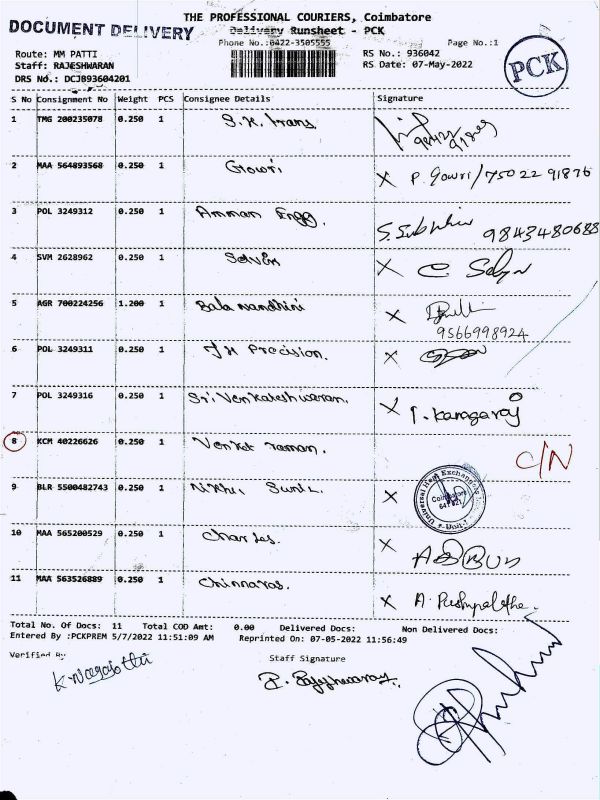 THE PROFESSIONAL COURIERS, Coimbatore
DOCUMENT DELIVERY
Delivery Runsheet - PCK
Phone No.:0422-3505555
Page No.:1
Route: MM PATTI
RS No.: 936042
Staff: RAJESHWARAN
RS Date: 07-May-2022
DRS No.: DCJ893604201
PCK
S No Consignment No Weight PCS Consignee Details Signature
1 TMG 200235078 0.250 1 S.K. trans.
2 MAA 564893568 0.250 1 Gowri X P. Gowri/75022 91876
3 POL 3249312 0.250 1 Amman Engg. 9843480688
4 SVM 2628962 0.250 1 Selvin X
5 AGR 700224256 1.200 1 Bala nandhini X
9566998924
6 POL 3249311 0.250 1 JK Precision. X
7 POL 3249316 0.250 1 Sri Venkateshwaran. X T. Kamaraj
8 KCM 40226626 0.250 1 Venket raman. C/N
9 BLR 5500482743 0.250 1 Nikhil Sunil X
Universal Heat Exchangers
Coimbatore
10 MAA 565200529 0.250 1 Charles. X
11 MAA 563526889 0.250 1 Chinnaras. X A. Pushpalatha.
Total No. Of Docs: 11 Total COD Amt: 0.00 Delivered Docs: Non Delivered Docs:
Entered By :PCKPREM 5/7/2022 11:51:09 AM Reprinted On: 07-05-2022 11:56:49
Verified By
Staff Signature
P. Rajeshwaran.